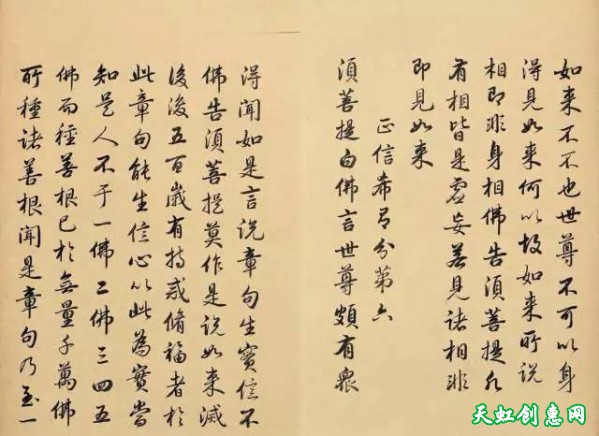 如来不不也世尊不可以身
得見如来何以故如来所說
相即非身相佛告須菩提凡
有相皆是虚妄若見諸相非
即見如来
正信希有分第六
須菩提白佛言世尊頗有衆
得聞如是言說章句生實信不
佛告須菩提莫作是說如来滅
後後五百歲有持戒脩福者於
此章句能生信心以此為實當
知是人不于一佛二佛三四五
佛而種善根已於無量千萬佛
所種諸善根聞是章句乃至一
天虹创惠网